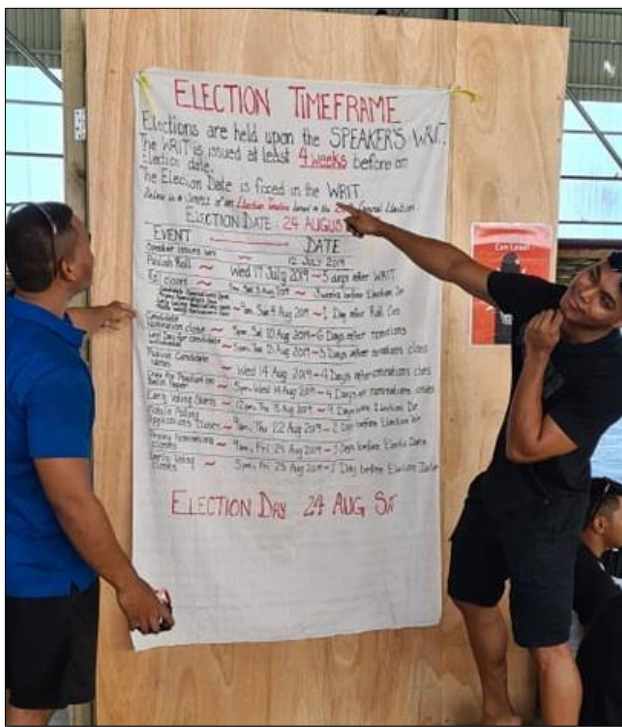 ELECTION TIMEFRAME
Elections are held upon the SPEAKER'S WRIT.
The WRIT is issued at least 4 weeks before an
Election date.
The Election Date is faced in the WRIT
Below is a sample of an Election Timeline based on the General Election.
ELECTION DATE: 24 AUGUS
EVENT DATE
Speaker issues Writ ~ 12 JULY 2019
Publish Roll ~ Wed 17 July 2019 ~ 5 days after WRIT
Roll closes ~ Sat 3 Aug 2019 ~ 3 weeks before Election
9am, Sun 4 Aug 2019 ~ 1 Day after Roll
Candidate
Nomination close ~ 5pm, Sat 10 Aug 2019 ~ 6 Days after nominations
Last Day for candidate
5pm, Tue 13 Aug 2019 ~ 3 Days after nominations closes
Publish Candidate
names ~ Wed 14 Aug 2019 ~ 4 Days after nominations closes
Draw for Position on
Ballot Paper ~ 5pm, Wed 14 Aug 2019 ~ 4 Days after nominations closes
Early Voting Starts ~ 12pm, Thu 15 Aug 2019 ~ 9 Days before Election
Mobile Polling
Applications closes ~ 9am, Thu 22 Aug 2019 ~ 2 Day before Election
Proxy Nominations
closes ~ 9am, Fri 23 Aug 2019 ~ 1 Days before Election Date
Early Voting
closes ~ 5pm, Fri 23 Aug 2019 ~ 1 Day before Election Date
ELECTION DAY 24 AUG
Can Lead!